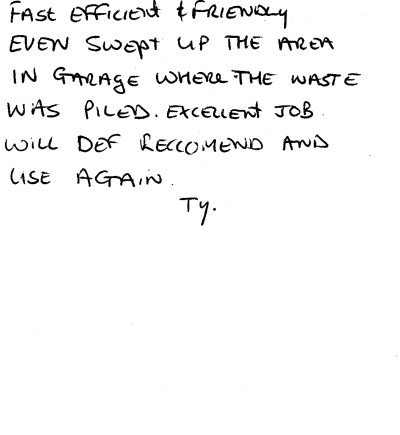 FAST EFFICIENT & FRIENDLY
EVEN SWEPT UP THE AREA
IN GARAGE WHERE THE WASTE
WAS PILED. EXCELLENT JOB
WILL DEF RECCOMEND AND
USE AGAIN.
Ty.